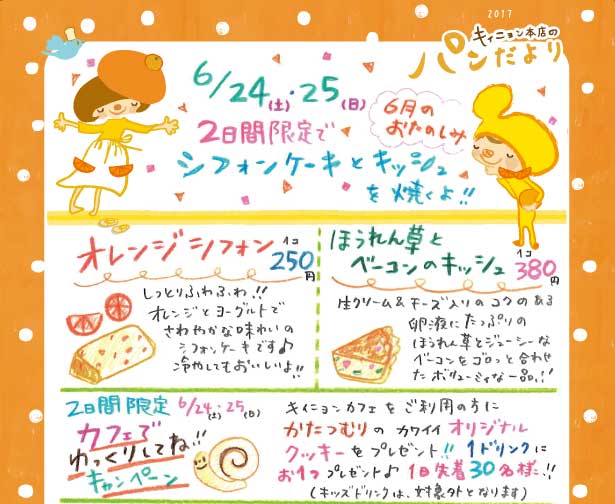 2017
キィニョン本店の
パンだより
6/24(土)・25(日)
6月の
おたのしみ
2日間限定で
シフォンケーキとキッシュ
を焼くよ!!
オレンジシフォン 1コ 250円
しっとりふわふわ!!
オレンジとヨーグルトで
さわやかな味わいの
シフォンケーキです♪
冷やしてもおいしいよ!!
ほうれん草と
ベーコンのキッシュ 1コ 380円
生クリーム&チーズ入りのコクのある
卵液にたっぷりの
ほうれん草とジューシーな
ベーコンをゴロっと合わせ
たボリューミィな一品!!
2日間限定 6/24(土)・25(日)
カフェで
ゆっくりしてね!!
キャンペーン
キィニョンカフェをご利用の方に
かたつむりのカワイイオリジナル
クッキーをプレゼント!! 1ドリンクに
お1つプレゼント♪ 1日先着30名様!!
(キッズドリンクは、対象外となります)